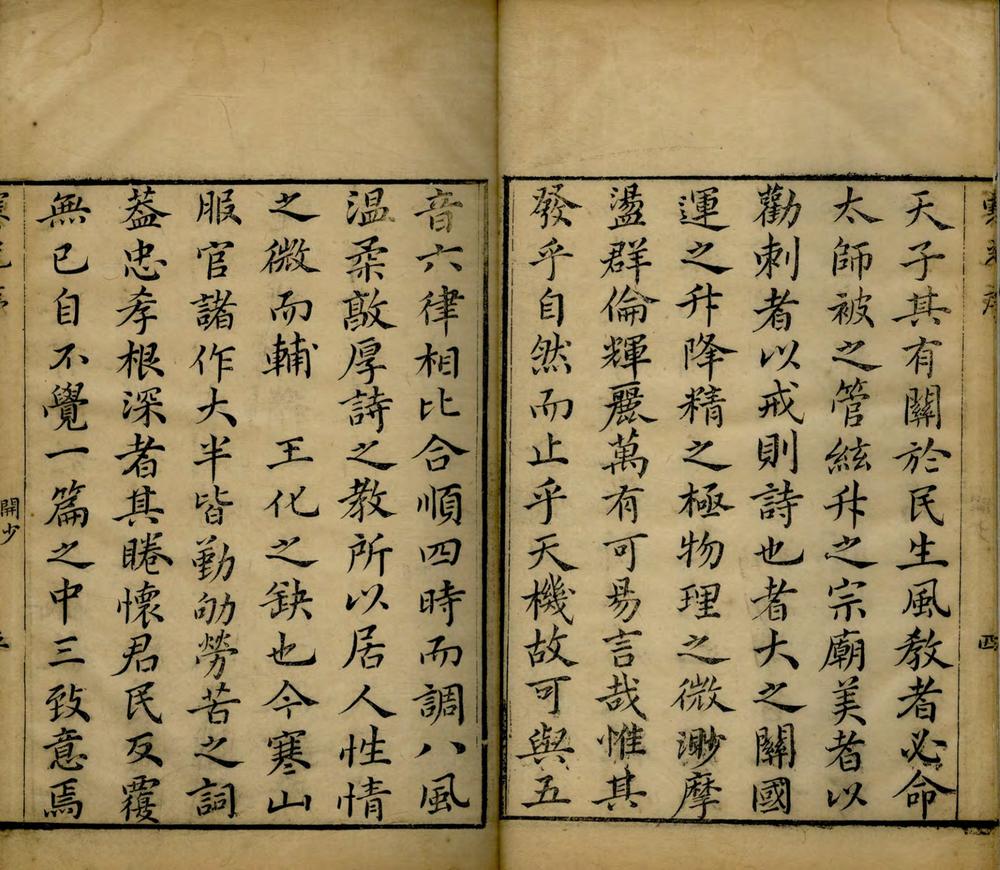 天子其有關於民生風教者必命
太師被之管絃升之宗廟美者以
勸刺者以戒則詩也者大之關國
運之升降精之極物理之微渺摩
盪群倫輝麗萬有可易言哉惟其
發乎自然而止乎天機故可與五
音六律相比合順四時而調八風
温柔敦厚詩之教所以居人性情
之微而輔　王化之缺也今寒山
服官諸作大半皆勤劬勞苦之詞
葢忠孝根深者其睠懷君民反覆
無已自不覺一篇之中三致意焉
四
開少